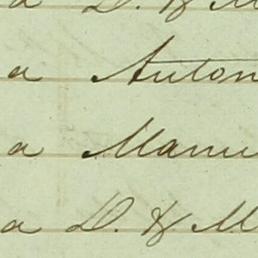 a D. & M
a Anton
a Manu
a D. & M